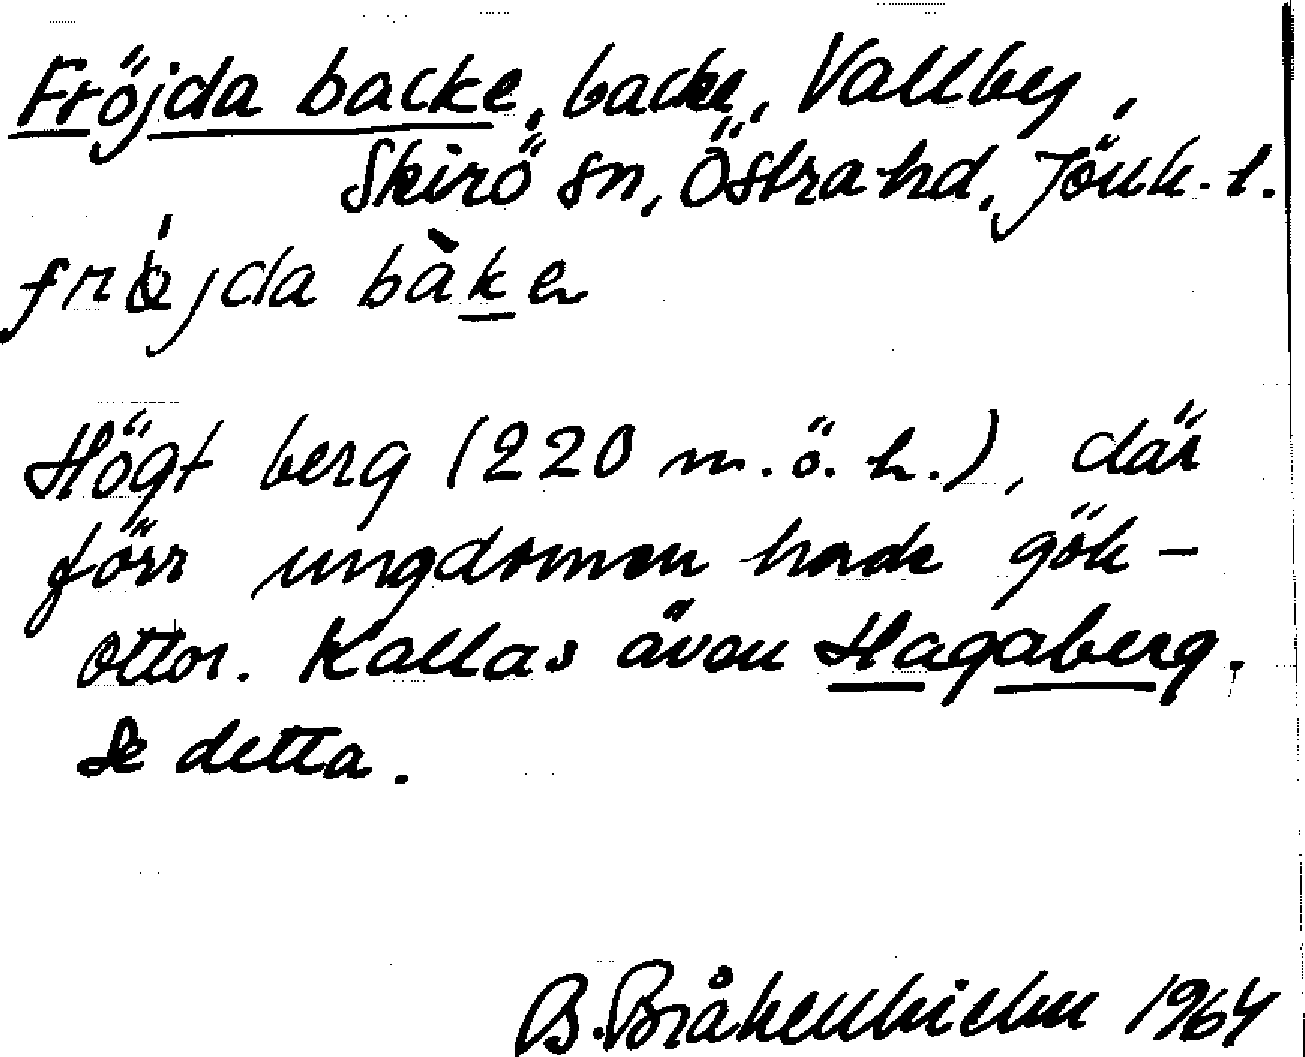 Fröjda backe, backe, Vallby,
Skirö sn, Östra hd, Jönk. l.
frö́jda bàke
Högt berg (220 m. ö. h.), där
förr ungdomen hade gök-
ottor. Kallas även Hagaberg.
Se detta.
B. Bråkenhielm 1964